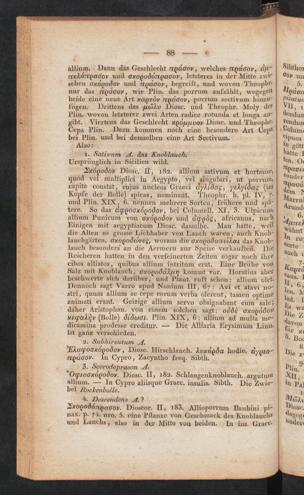 — 88 —
allium. Dann das Geschlecht πράσον, welches πράσον, ἀμ-
πελόπρασον und σκοροδόπρασον, letzteres in der Mitte zwi-
schen σκόροδον und πράσον, begreift, und wovon Theophr.
nur das πράσον, wie Plin. das porrum aufzählt, wogegen
beide eine neue Art καρτὸν πράσον, porrum sectivum hinzu-
fügen. Drittens das μῶλυ Diosc. und Theophr. Moly des
Plin. wovon letzterer zwei Arten radice rotunda et longa an-
gibt. Viertens das Geschlecht κρόμμυον Diosc. und Theophr.
Cepa Plin. Dazu kommen noch eine besondere Art Cepa
bei Plin. und bei demselben eine Art Sectivum.
Also:
1. Sativum A. das Knoblauch.
Ursprünglich in Sicilien wild.
Σκόροδον Diosc. II, 182. allium sativum et hortense,
quod vel multiplici in Aegypto, vel singulari, ut porrum,
capite constat, cujus nucleos Graeci ἀγλῖθας, γελγίδας (im
Kopfe der Bolle) spicas, nominant. Theophr. h. pl. IV,
und Plin. XIX, 6. nennen mehrere Sorten, frühere und spä-
tere. So das ἀφροσκόροδον, bei Columell. XI, 3. Ulpicum,
allium Punicum von σκόροδον und ἀφρός, africanus, nach
Einigen mit aegyptiacum Diosc. dasselbe. Man hatte, weil
die Alten so grosse Liebhaber von Lauch waren, auch Knob-
lauchgärten, und die das Knob-
lauch besonders an die Aermern zur Speise verkauften. Die
Reicheren hatten in den verfeinerten Zeiten sogar noch ihre
cibos alliatos, quibus allium intritum erat. Eine Brühe von
Salz mit Knoblauch, σκοροδάλμη kommt vor. Horatius aber
beschwerte sich darüber, und Plaut. ruft schon: allium olet.
Dennoch sagt Varro apud Nonium III, 67: Avi et atavi no-
stri, quum allium ac cepe eorum verba olerent, tamen optime
animati erant. Geizige allium servo obsignabant cum sale;
daher Aristophan. von einem solchen sagt: οὐδὲ σκορόδου
κεφαλὴν (Bolle) δίδωσι. Plin. XIX, 6: allium ad multa me-
dicamina prodesse creditur. — Die Alliaria Erysimum Linn.
ist ganz verschieden.
2. Subhirsutum A.
Ἐλαφοσκόροδον, Diosc. Hirschlauch. hodie. ἀγριο-
πράσον. In Cypro, Zacyntho freq. Sibth.
3. Scorodoprasum A.
Ὀφιοσκόροδον. Diosc. II, 182. Schlangenknoblauch. argutum
allium. — In Cypro aliisque Graec. insulis. Sibth. Die Zwie-
bel Rockenbolle.
4. Descendens A.?
Σκοροδόπρασον. Dioscor. II, 183. Allioporrum Bauhini pi-
nax. p. 72. nro. 5. eine Pflanze von Geschmack des Knoblauchs
und Lauchs, also in der Mitte von beiden. In ins. Graec.